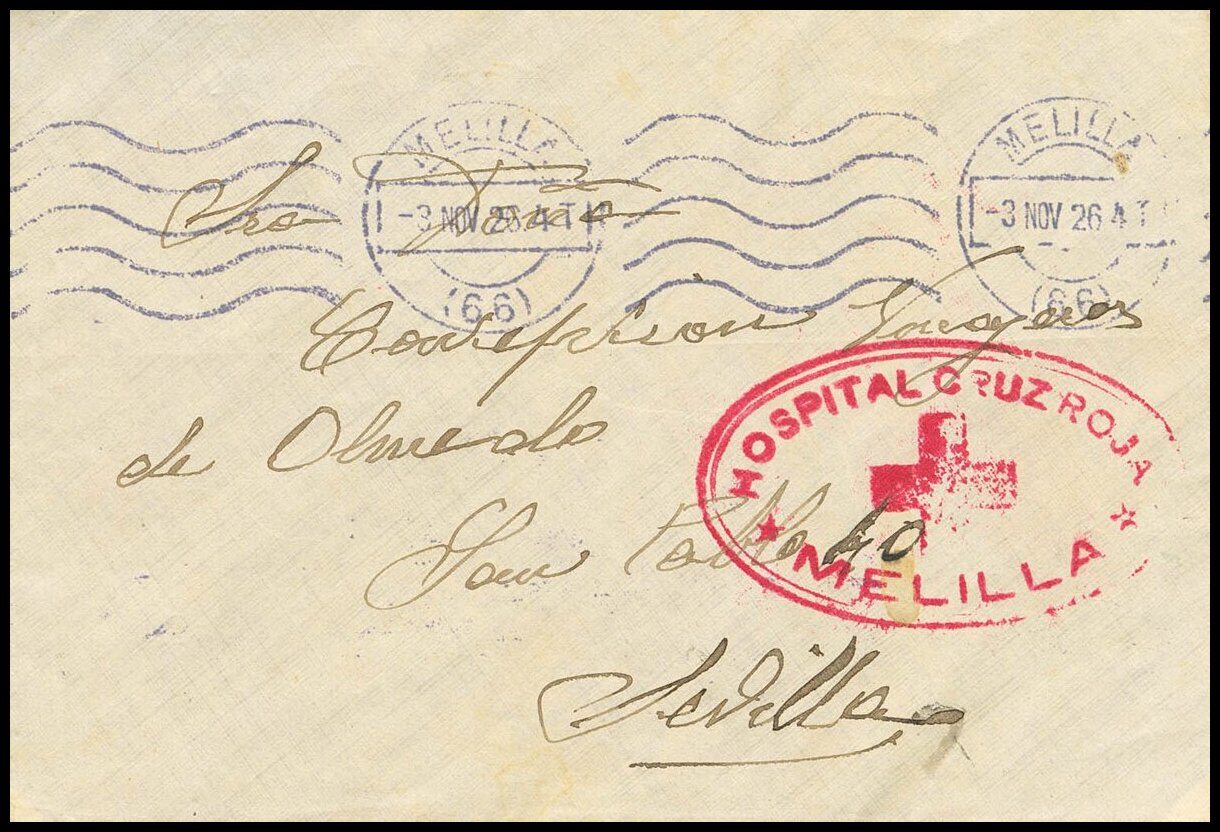 MELILLA MELILLA
-3 NOV 26 4 T -3 NOV 26 4 T
(66) (66)
Sra Doña
Concepcion
de Olmedo
HOSPITAL CRUZ ROJA
San Pablo 40
MELILLA
Sevilla